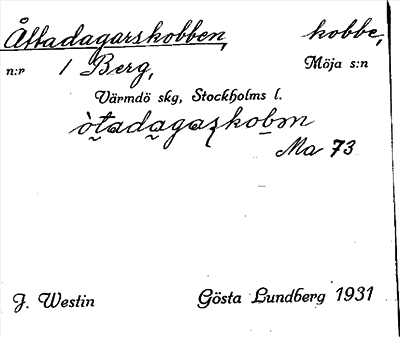 Åttadagarskobben, kobbe,
n:r 1 Berg, Möja s:n
Värmdö skg, Stockholms l.
Ma 73
J. Westin Gösta Lundberg 1931